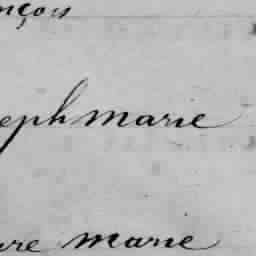 nçois
eph Marie
rre Marie